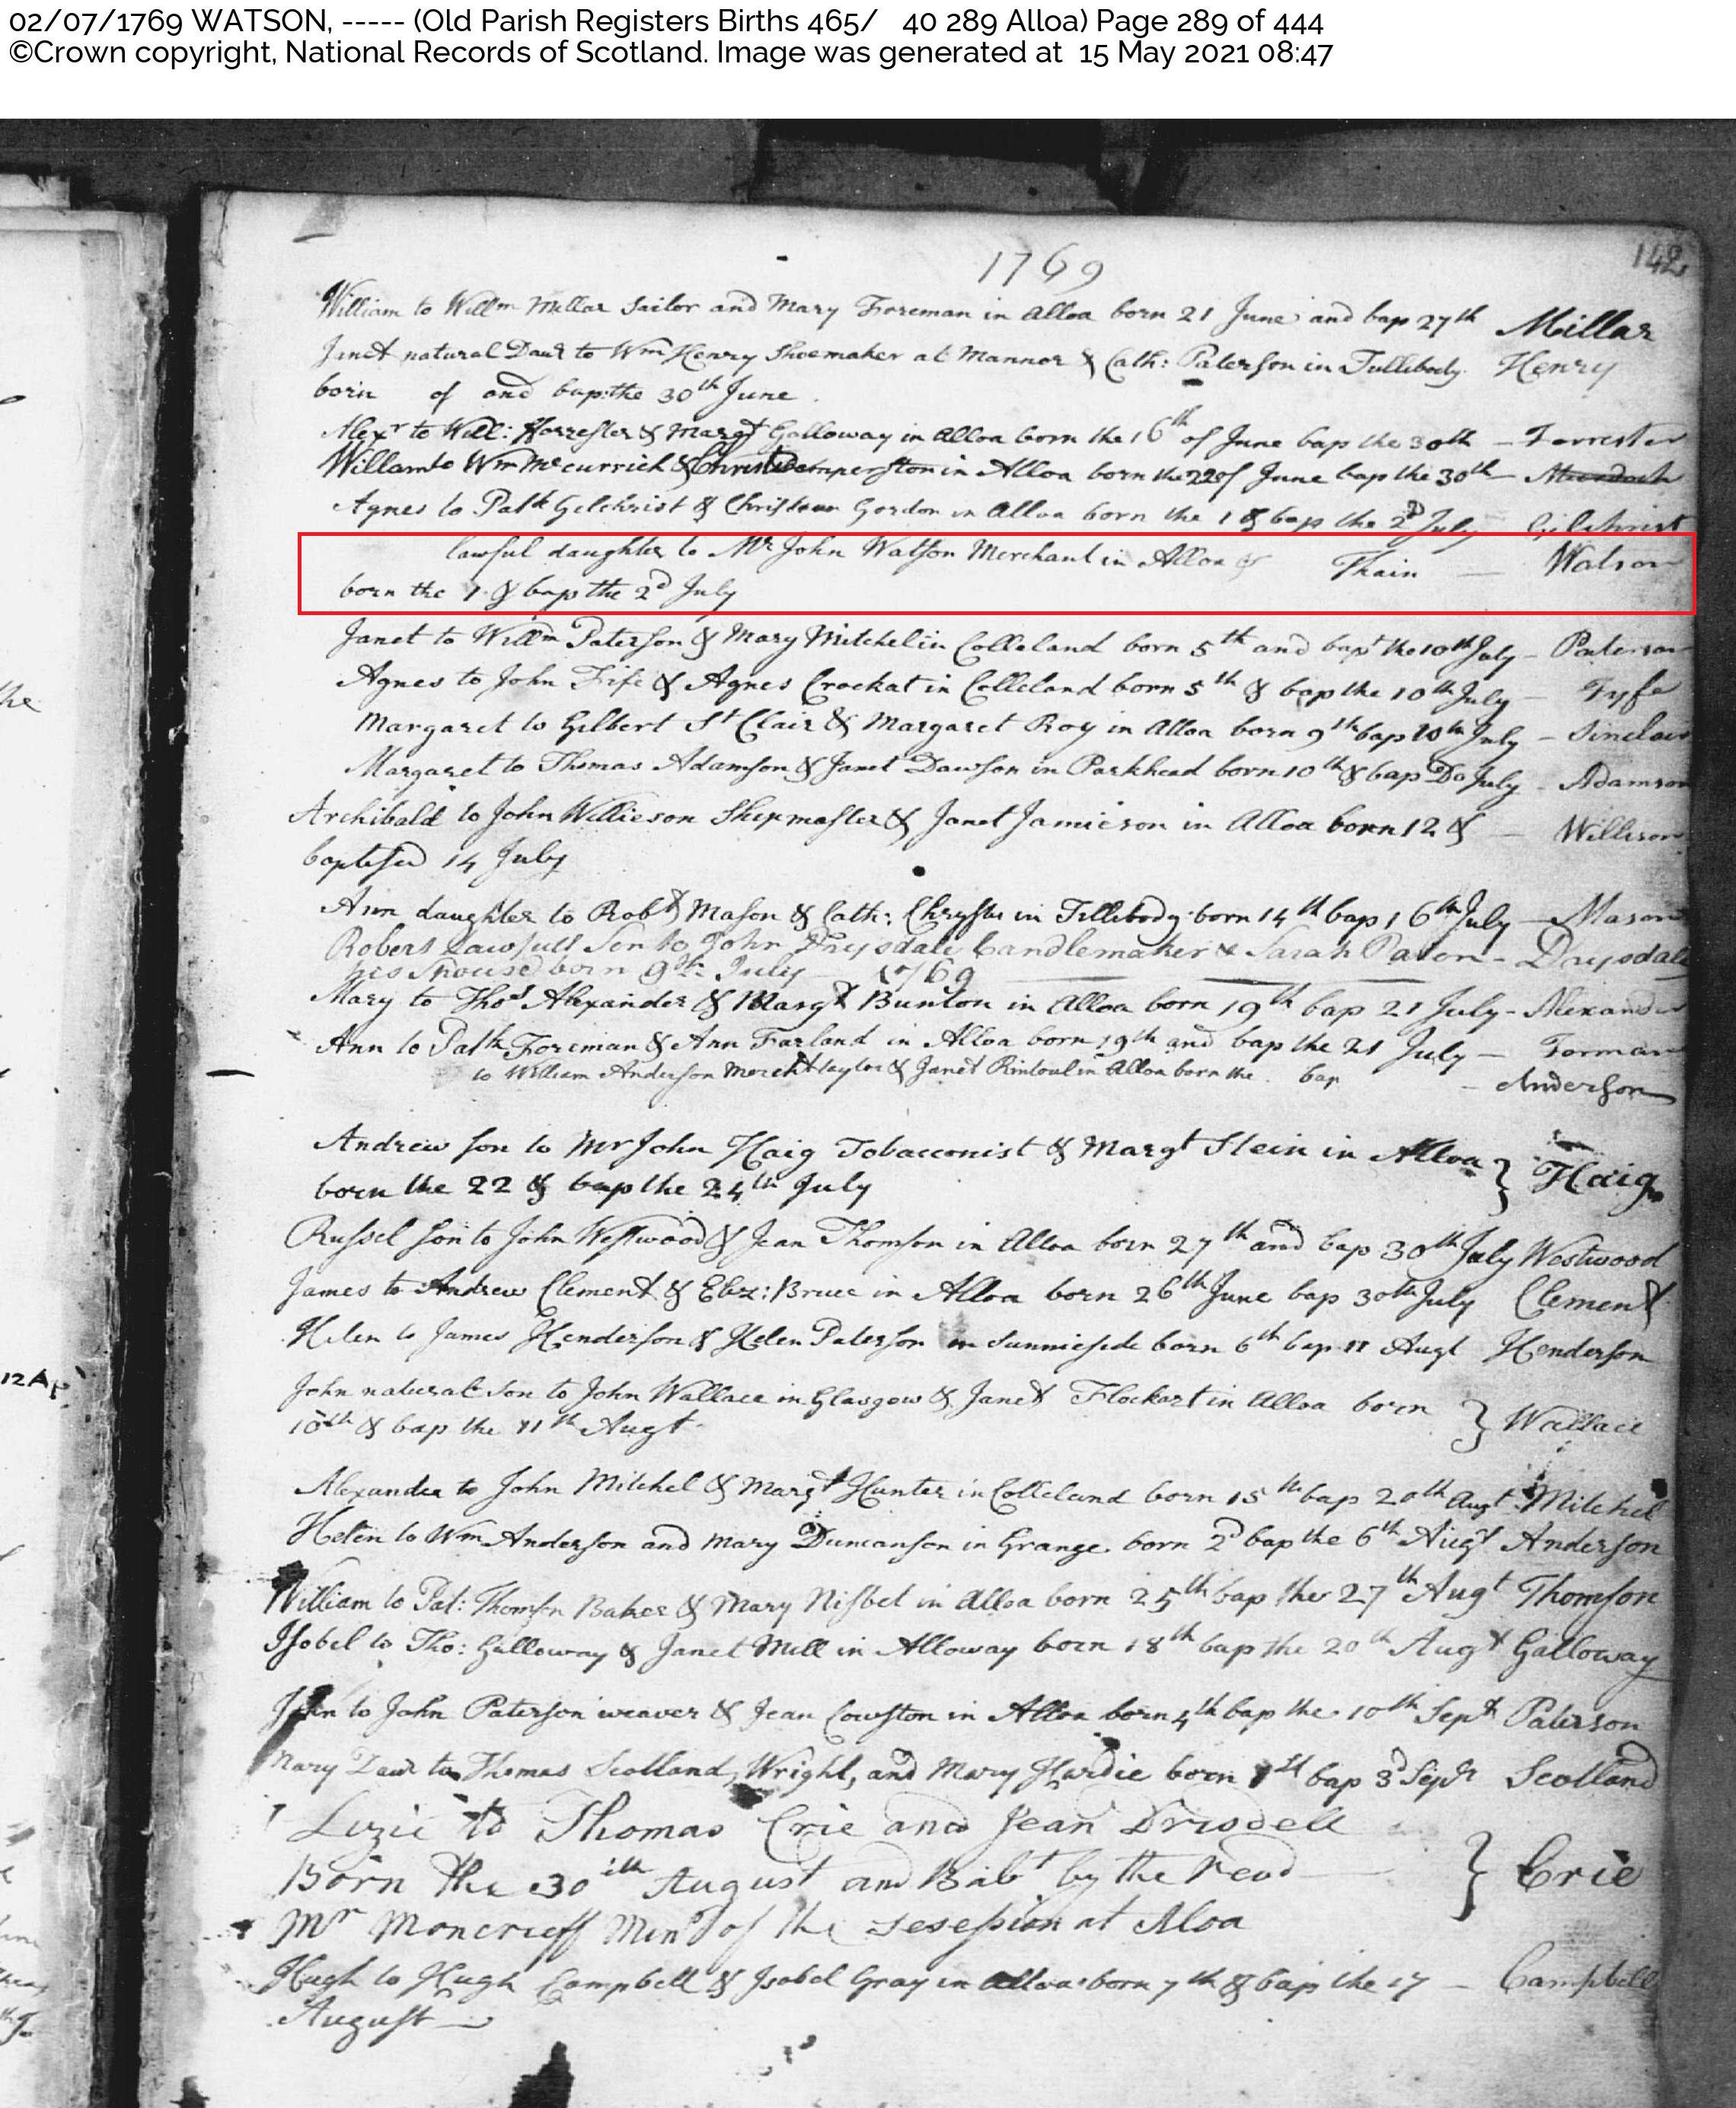 02/07/1769 WATSON, ----- (Old Parish Registers Births 465/ 40 289 Alloa) Page 289 of 444
©Crown copyright, National Records of Scotland. Image was generated at 15 May 2021 08:47
1769
142
William to Willm Millar Sailor and Mary Foreman in Alloa born 21 June and bap 27th Millar
Jenet natural Daur to Wm Henry Shoemaker at Mannor & Cath: Paterson in Tullibody Henry
born of and bap: the 30th June.
Alexr to Will: Forrester & Margt Galloway in Alloa born the 16th of June bap the 30th – Forrester
Willam to Wm Mccurrich & in Alloa born the 22 of June bap the 30th – Murdoch
Agnes to Patk Gilchrist & Christian Gordon in Alloa born the 1 & bap the 2d July Gilchrist
lawful daughter to Mr John Watson Merchant in Alloa & Thain — Watson
born the 1 & bap the 2d July
Janet to Willm Paterson & Mary Mitchel in Colleland born 5th and bapt the 10th July – Paterson
Agnes to John Fife & Agnes Crockat in Colleland born 5th & bap the 10th July – Fyfe
Margaret to Gilbert St Clair & Margaret Roy in Alloa born 9th bap 10th July – Sinclair
Margaret to Thomas Adamson & Janet Dawson in Parkhead born 10th & bap Do July – Adamson
Archibald to John Willieson Shipmaster & Janet Jamieson in Alloa born 12 & – Willison
baptised 14 July
Ann daughter to Robt Mason & Cath: Chrystie in Tillibody born 14th bap 16th July – Mason
Robert Lawfull Son to John Drysdale Candlemaker & Sarah Paton – Drysdale
his spouse born 9th July – 1769
Mary to Thos Alexander & Margt Bunton in Alloa born 19th bap 21 July – Alexander
Ann to Patk Foreman & Ann Farland in Alloa born 19th and bap the 21 July – Forman
to William Anderson Mercht taylor & Janet Rintoul in Alloa born the bap – Anderson
Andrew son to Mr John Haig Tobacconist & Margt Stein in Alloa } Haig
born the 22 & bap the 24th July
Russel son to John Westwood & Jean Thomson in Alloa born 27th and bap 30th July Westwood
James to Andrew Clement & Eliz: Bruce in Alloa born 26th June bap 30th July Clement
Helen to James Henderson & Helen Paterson in Sunnieside born 6th bap 11 Augt Henderson
John natural son to John Wallace in Glasgow & Janet Flockart in Alloa born } Wallace
10th & bap the 11th Augt
Alexander to John Mitchel & Margt Hunter in Colleland born 15th bap 20th Augt Mitchel
Helen to Wm Anderson and Mary Duncanson in Grange born 2d bap the 6th Augt Anderson
William to Pat: Thomson Baker & Mary Nisbet in Alloa born 25th bap the 27th Augt Thomson
Isobel to Tho: Galloway & Janet Mill in Alloway born 18th bap the 20th Augt Galloway
John to John Paterson weaver & Jean Cowston in Alloa born 4th bap the 10th Sept Paterson
Mary Daur to Thomas Scotland, Wright, and Mary Hardie born 1st bap 3d Sept Scotland
Lizie to Thomas Crie and Jean Drisdell
Born the 30th August and Babt by the Revd } Crie
Mr Moncrieff Minr of the Sesession at Aloa
Hugh to Hugh Campbell & Isobel Gray in Alloa born 7th & bap the 17 – Campbell
August
12 Ap
the